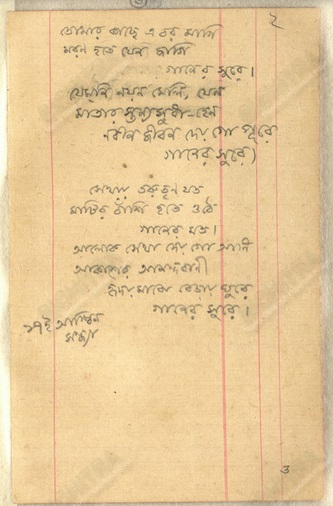 ২
তোমার কাছে এ বর মাগি
মরণ হতে যেন জাগি
গানের সুরে।
যেমনি নয়ন মেলি, যেন
মাতার স্তন্যসুধা-হেন
নবীন জীবন দেয় গো পূরে
গানের সুরে।
সেথায় তরু তৃণ যত
মাটির বাঁশি হতে ওঠে
গানের মত।
আলোক সেথা দেয় গো আনি
আকাশের আনন্দবাণী
হৃদয় মাঝে বেড়ায় ঘুরে
গানের সুরে।
১৭ই আশ্বিন
সন্ধ্যা
3